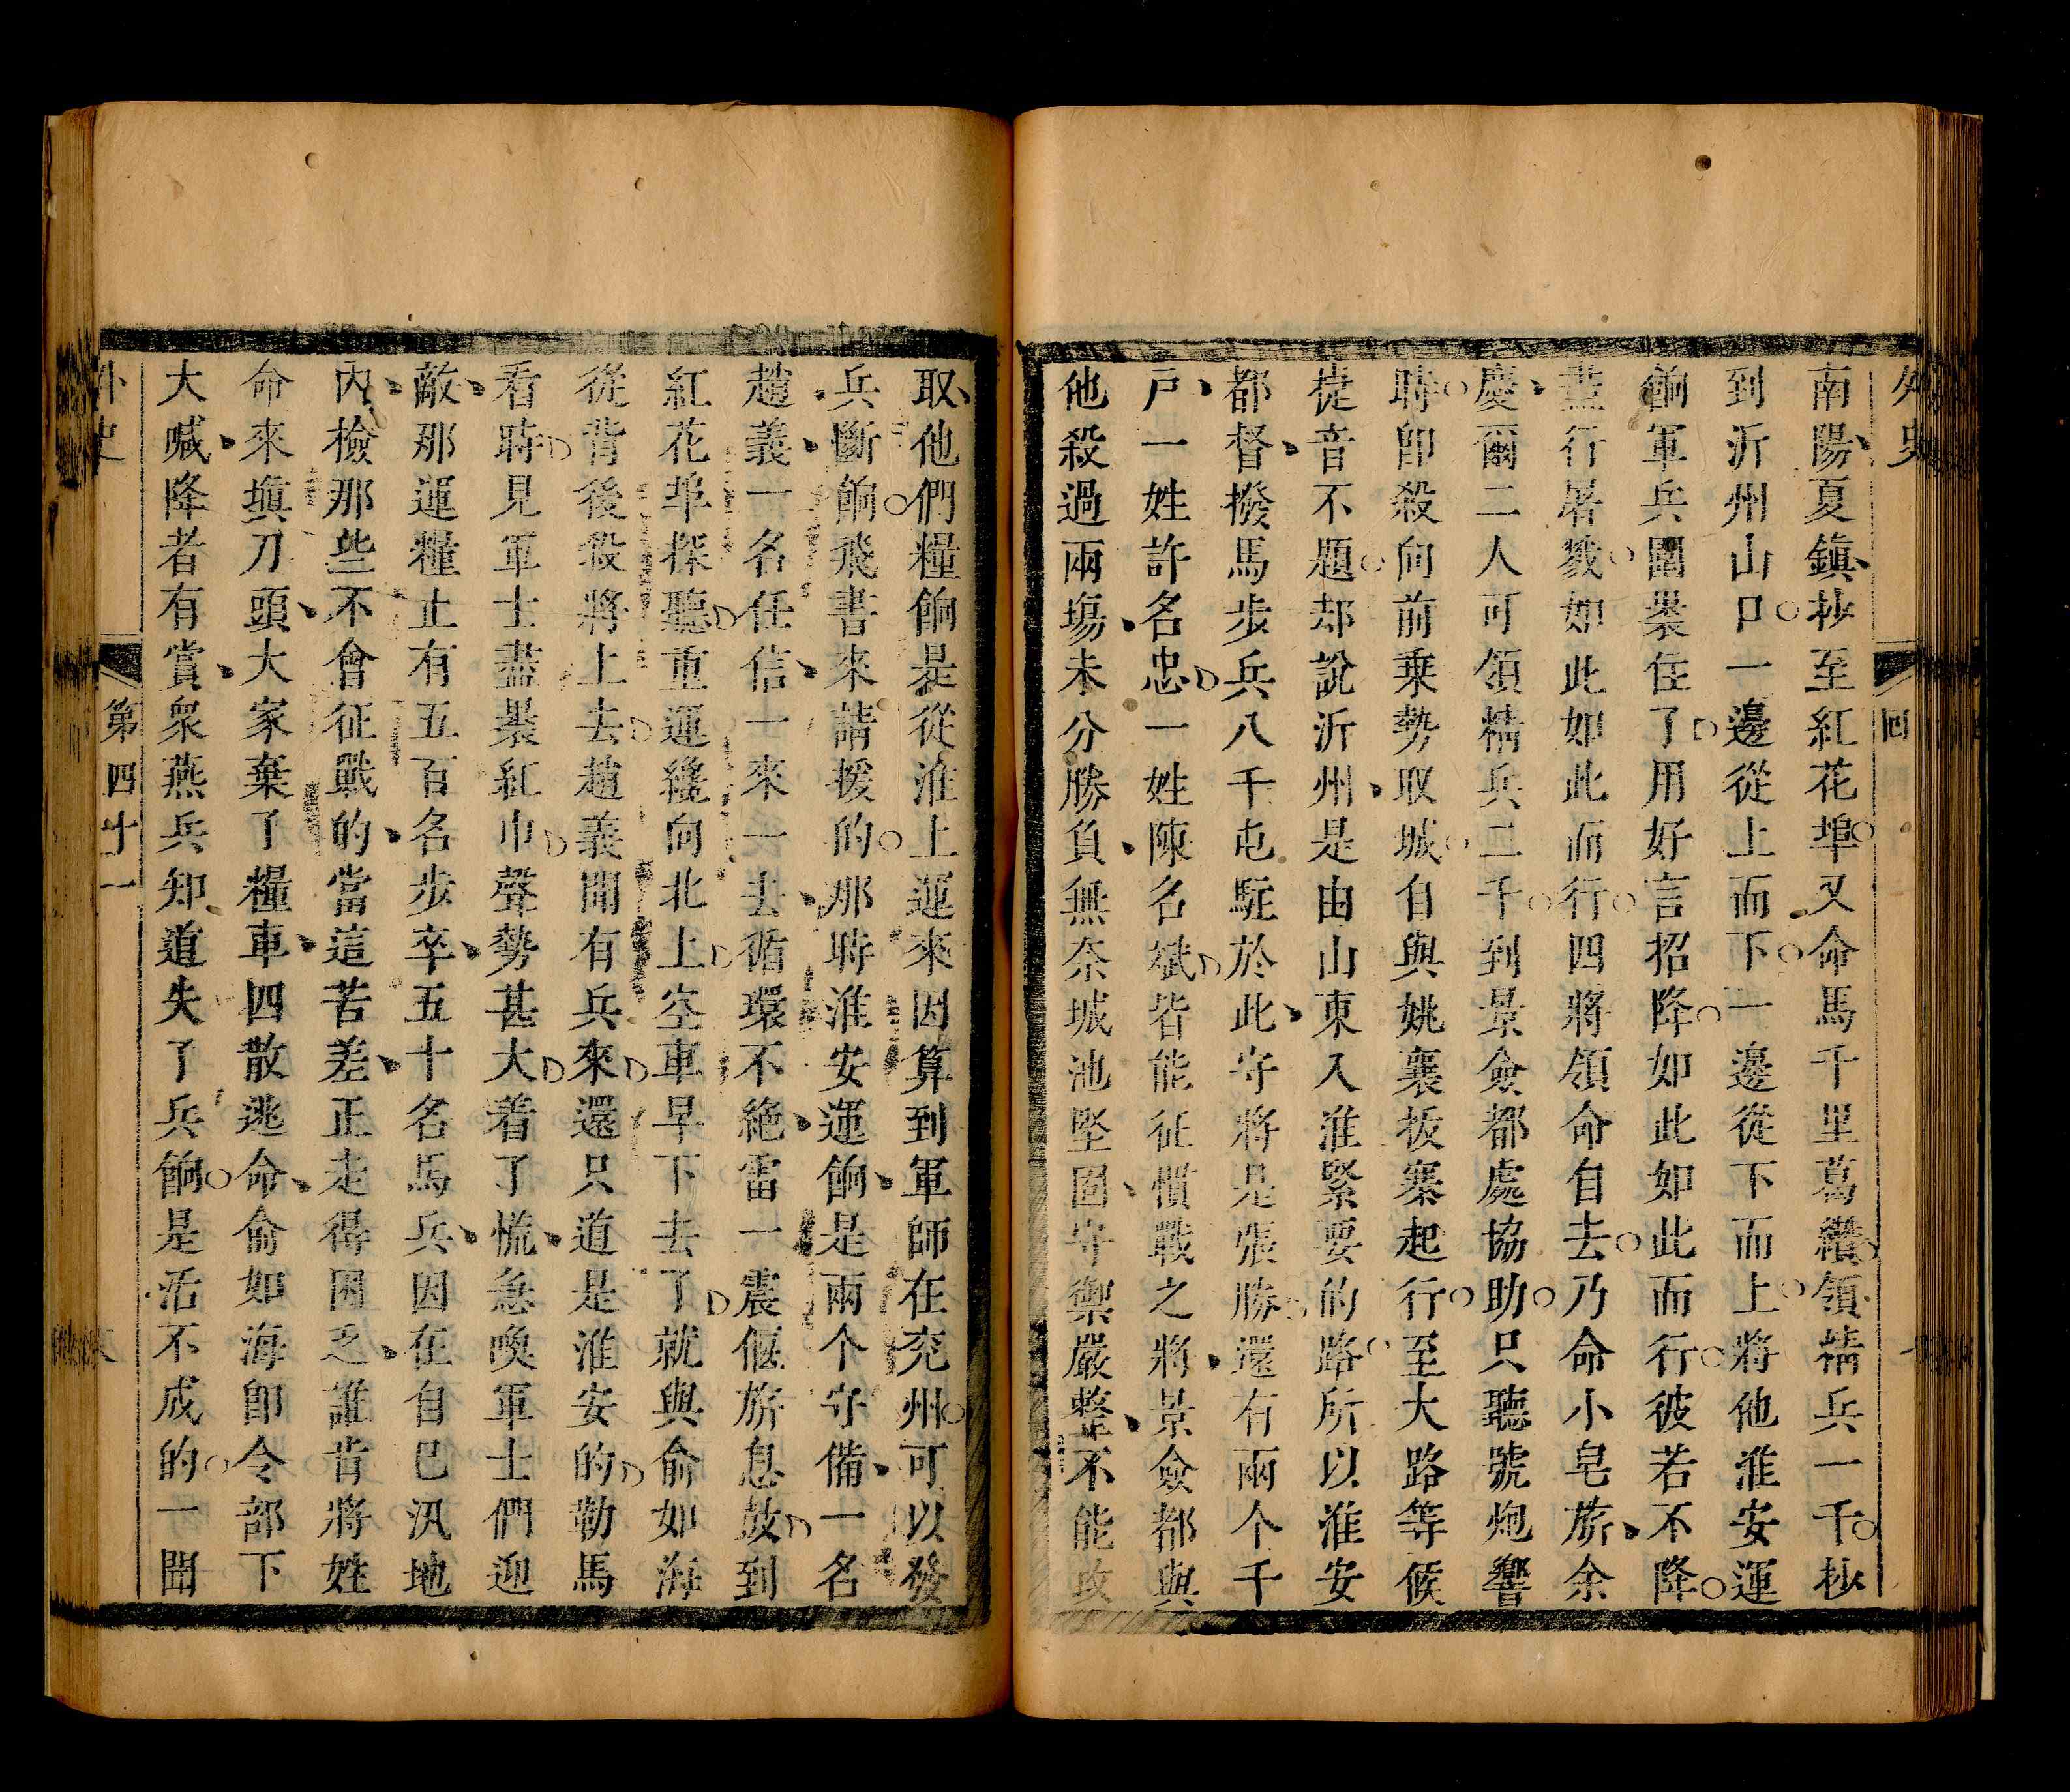 外史
回
南陽夏鎮抄至紅花埠又命馬千里葛纘領精兵一千抄
到沂州山口一邊從上而下一邊從下而上將他淮安運
餉軍兵圍裹住了用好言招降如此如此而行彼若不降
盡行屠戮如此如此而行四將領命自去乃命小皂旂余
慶爾二人可領精兵二千到景僉都處協助只聽號炮響
時即殺向前乗勢取城自與姚襄拔寨起行至大路等候
捷音不題却說沂州是由山東入淮緊要的路所以淮安
都督撥馬步兵八千屯駐於此守將是張勝還有兩个千
戶一姓許名忠一姓陳名斌皆能征慣戰之將景僉都與
他殺過兩塲未分勝負無奈城池堅固守禦嚴整不能攻
取他們糧餉是從淮上運來因算到軍師在兖州可以發
兵斷餉飛書來請援的那時淮安運餉是兩个守備一名
趙義一名任信一來一去循環不絶雷一震偃旂息放到
紅花埠探聽重運纔向北上空車早下去了就與俞如海
從背後殺將上去趙義聞有兵來還只道是淮安的勒馬
看時見軍士盡裹紅巾聲勢甚大着了慌急喚軍士們迎
敵那運糧止有五百名步卒五十名馬兵因在自巳汛地
内撿那些不會征戰的當這苦差正走得困乏誰肯將姓
命來塡刀頭大家棄了糧車四散逃命俞如海卽令部下
大喊降者有賞衆燕兵知道失了兵餉是活不成的一聞
外史
第四十一